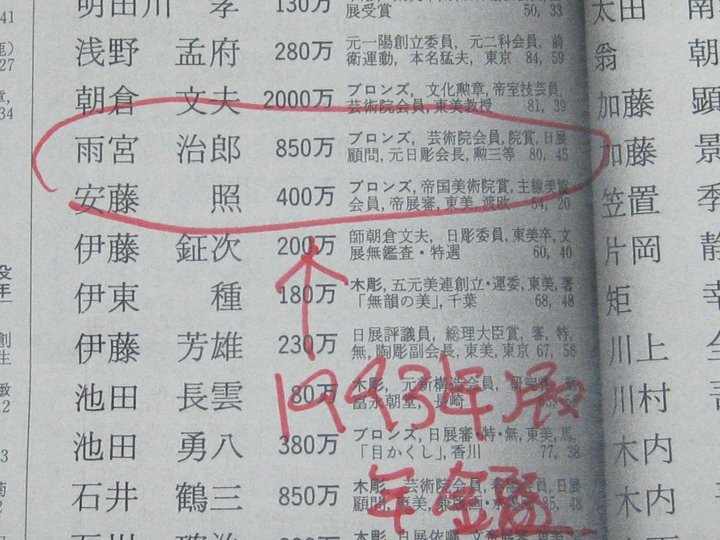 明田川 孝 130万
展受賞 50, 33
浅野 孟府 280万 元一陽創立委員, 元二科会員, 前
衛運動, 本名猛夫, 東京 84, 59
朝倉 文夫 2000万 ブロンズ, 文化勲章, 帝室技芸員,
芸術院会員, 東美教授 81, 39
雨宮 治郎 850万 ブロンズ, 芸術院会員, 院賞, 日展
顧問, 元日彫会長, 勲三等 80, 45
安藤 照 400万 ブロンズ, 帝国美術院賞, 主線美協
会員, 帝展審, 東美, 渡欧 54, 20
伊藤 鉦次 200万 師朝倉文夫, 日彫委員, 東美卒, 文
展無鑑査・特選 60, 40
伊東 種 180万 木彫, 五元美連創立・運委, 東美, 著
「無韻の美」, 千葉 68, 48
伊藤 芳雄 230万 日展評議員, 総理大臣賞, 審, 特,
無, 陶彫副会長, 東美, 東京 67, 56
池田 長雲 80万 木彫, 元新構造会員,
冨永朝堂, 長崎
池田 勇八 380万 ブロンズ, 日展審・特・無, 東美, 馬,
「目かくし」, 香川 77, 38
石井 鶴三 850万 木彫, 芸術院会員, 日展
顧問, 東美, 48
日展依嘱,
太田 南
翁 朝
加藤 顕
加藤 景
笠置 季
片岡 静
矩 幸
川上 全
川村
木内
木内
1993年版
年鑑